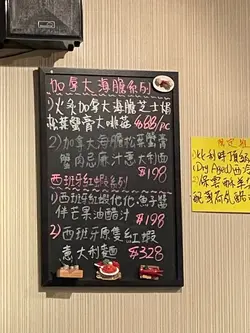 加拿大海膽系列
1)火炙加拿大海膽芝士焗
松葉蟹膏大啡菇 $68/PC
2)加拿大海膽松葉蟹膏
蟹肉忌廉汁意大利麵
$198
西班牙紅蝦系列
1)西班牙紅蝦他他魚子醬
伴芒果油醋汁 $198
2)西班牙原隻紅蝦
意大利麵 $328
限定
1)比利時頂級
(Dry Aged)
2)